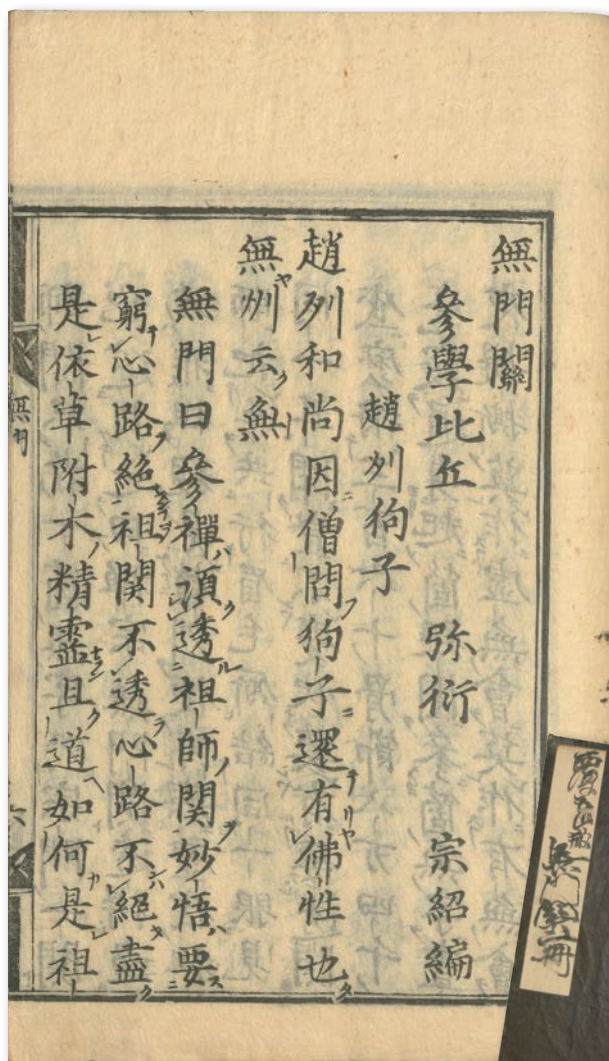 無門關
參學比丘　弥衍　宗紹編
趙州狗子
趙州和尚因僧問狗子還有佛性也
無州云無
無門曰參禪須透祖師関妙悟要
窮心路絶祖関不透心路不絶盡
是依草附木精靈且道如何是祖
無門
六
無門關一冊